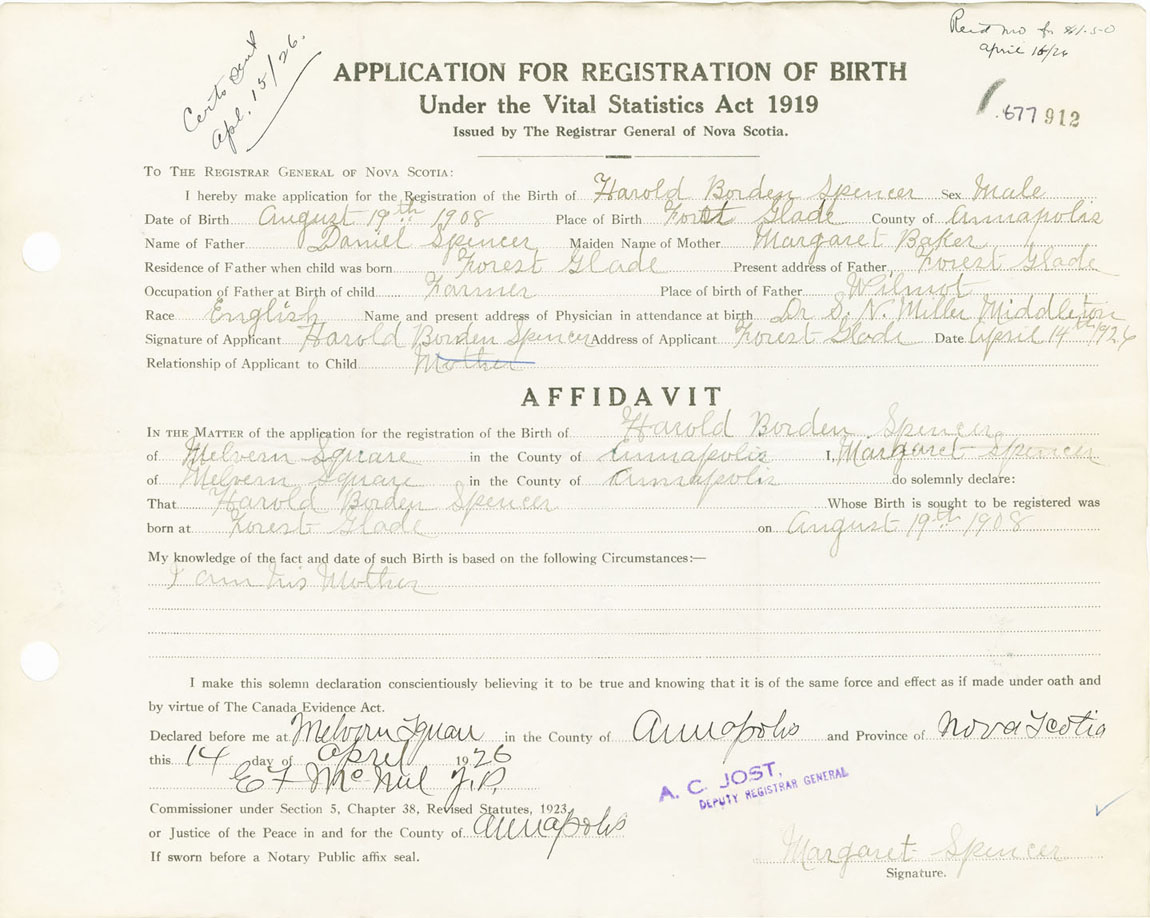 Certs Sent
Apl. 15/26.
Recd mo for $1.50
April 15/26
APPLICATION FOR REGISTRATION OF BIRTH
Under the Vital Statistics Act 1919
Issued by The Registrar General of Nova Scotia.
677 912
TO THE REGISTRAR GENERAL OF NOVA SCOTIA:
I hereby make application for the Registration of the Birth of Harold Borden Spencer Sex Male
Date of Birth August 19th 1908 Place of Birth Forest Glade County of Annapolis
Name of Father Daniel Spencer Maiden Name of Mother Margaret Baker
Residence of Father when child was born Forest Glade Present address of Father Forest Glade
Occupation of Father at Birth of child Farmer Place of birth of Father Wilmot
Race English Name and present address of Physician in attendance at birth Dr S. N. Miller Middleton
Signature of Applicant Harold Borden Spencer Address of Applicant Forest Glade Date April 14th/1926
Relationship of Applicant to Child Mother
AFFIDAVIT
IN THE MATTER of the application for the registration of the Birth of Harold Borden Spencer
of Melvern Square in the County of Annapolis I, Margaret Spencer
of Melvern Square in the County of Annapolis do solemnly declare:
That Harold Borden Spencer Whose Birth is sought to be registered was
born at Forest Glade on August 19th 1908
My knowledge of the fact and date of such Birth is based on the following Circumstances:—
I am his Mother
I make this solemn declaration conscientiously believing it to be true and knowing that it is of the same force and effect as if made under oath and
by virtue of The Canada Evidence Act.
Declared before me at Melvern Square in the County of Annapolis and Province of Nova Scotia
this 14 day of April 1926
E F McNeil J.P.
A. C. JOST,
DEPUTY REGISTRAR GENERAL
Commissioner under Section 5, Chapter 38, Revised Statutes, 1923
or Justice of the Peace in and for the County of Annapolis
If sworn before a Notary Public affix seal.
Margaret Spencer
Signature.